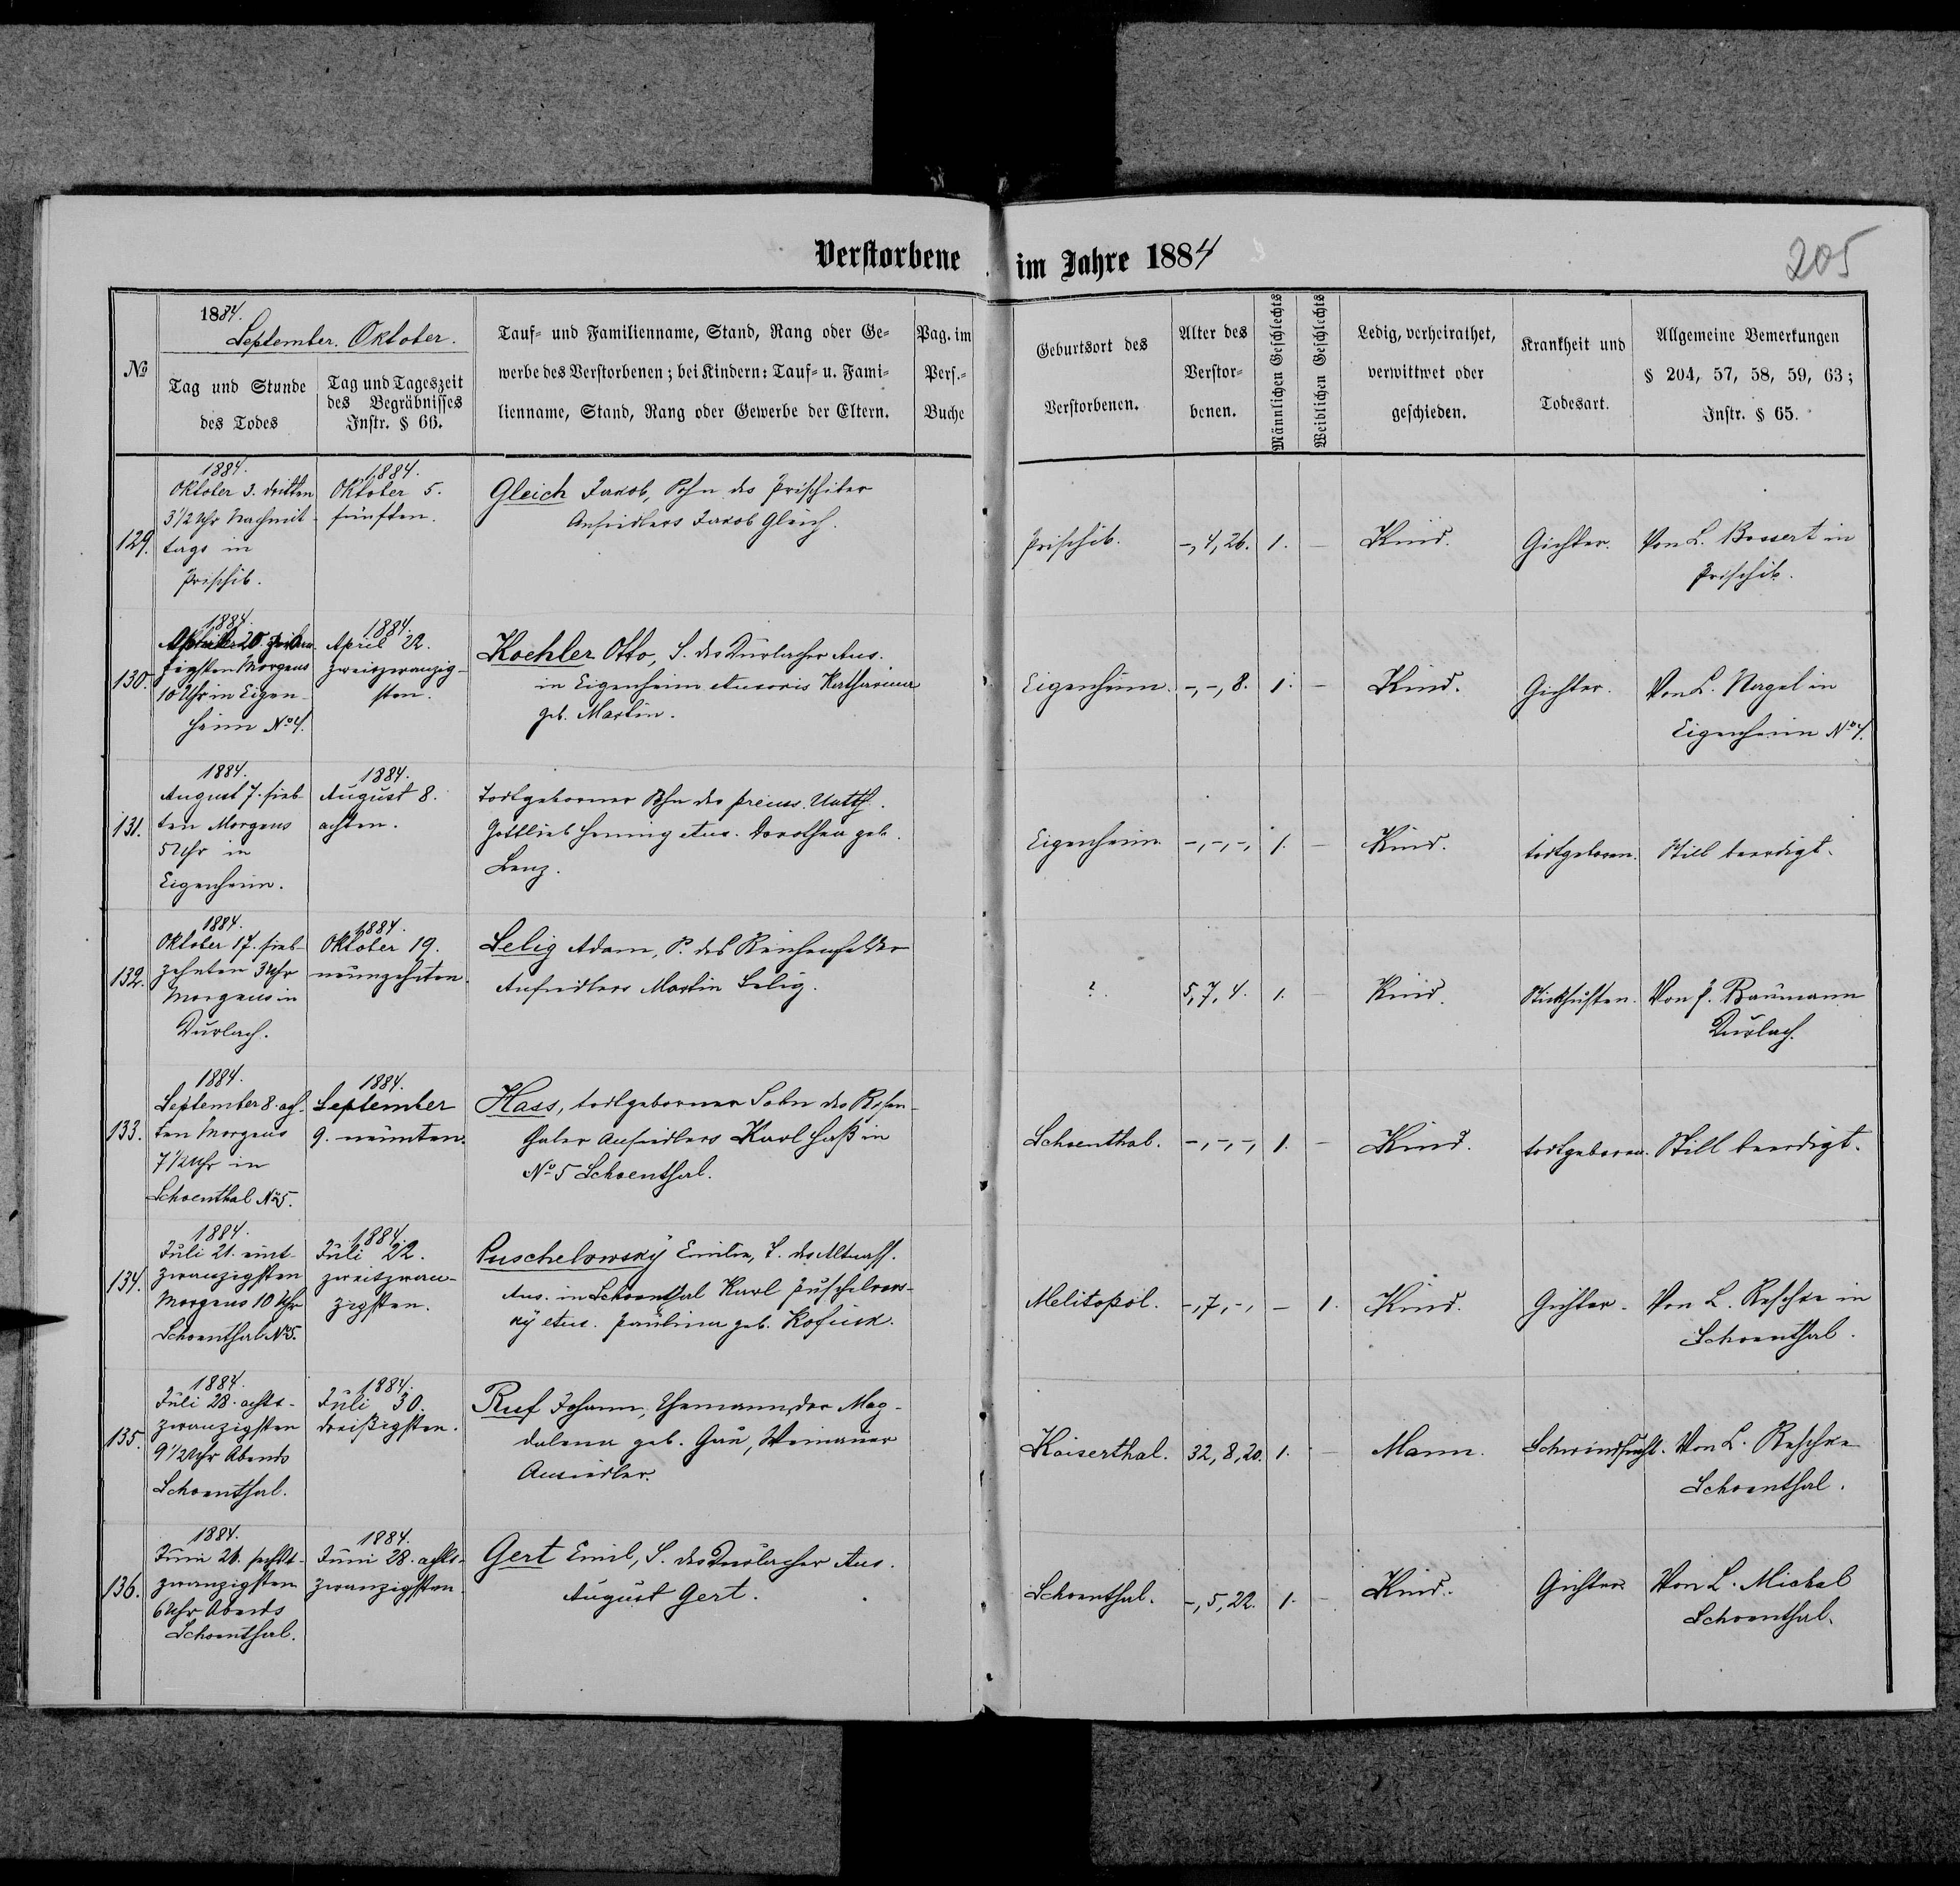 Verstorbene im Jahre 1884
205
№
1884.
September. Oktober.
Tag und Stunde
des Todes
Tag und Tageszeit
des Begräbnisses
Instr. § 66.
Tauf- und Familienname, Stand, Rang oder Ge-
werbe des Verstorbenen; bei Kindern: Tauf- u. Fami-
lienname, Stand, Rang oder Gewerbe der Eltern.
Pag. im
Pers.-
Buche
Geburtsort des
Verstorbenen.
Alter des
Verstor-
benen.
Männlichen Geschlechts
Weiblichen Geschlechts
Ledig, verheirathet,
verwittwet oder
geschieden.
Krankheit und
Todesart.
Allgemeine Bemerkungen
§ 204, 57, 58, 59, 63;
Instr. § 65.
129.
1884.
Oktober 3. dritten
3 1/2 Uhr Nachmit-
tags in
Prischib.
1884.
Oktober 5.
fünften.
Gleich Jakob, Sohn des Prischiber
Ansiedlers Jakob Gleich.
Prischib.
-, 4, 26.
1.
-
Kind.
Gichter.
Von L. Bossert in
Prischib.
130.
1884.
20.
zigsten Morgens
10 Uhr in Eigen-
heim No 4.
1884.
April 22.
zweizwanzig-
sten.
Koehler Otto, S. des Durlacher Ans.
in Eigenheim et uxoris Katharina
geb. Martin.
Eigenheim.
-, -, 8.
1.
-
Kind.
Gichter.
Von L. Nagel in
Eigenheim No 4.
131.
1884.
August 7. sieb-
ten Morgens
5 Uhr in
Eigenheim.
1884.
August 8.
achten.
Todtgeborner Sohn des preuss. Unterth.
Gottlieb Henning et ux. Dorothea geb.
Lenz.
Eigenheim
-, -, -,
1.
-
Kind.
todtgeboren.
Still beerdigt.
132.
1884.
Oktober 17. sieb-
zehnten 3 Uhr
Morgens in
Durlach.
1884.
Oktober 19.
neunzehnten.
Selig Adam, S. des Reichenfelder
Ansiedlers Martin Selig.
?.
5, 7, 4.
1.
-
Kind.
Stickhusten.
Von P. Baumann
Durlach.
133.
1884.
September 8. ach-
ten Morgens
7 1/2 Uhr in
Schoenthal No 5.
1884.
September
9. neunten.
Hass, todtgeborner Sohn des Rosen-
thaler Ansiedlers Karl Haß in
No 5 Schoenthal.
Schoenthal.
-, -, -,
1.
-
Kind.
todtgeboren.
Still beerdigt.
134.
1884.
Juli 21. eint-
zwanzigsten
Morgens 10 Uhr
Schoenthal No 5.
1884.
Juli 22.
zweitzwan-
zigsten.
Puschelowsky Emilie, T. des
Ans. in Schoenthal Karl Puschelows-
ky et ux. Paulina geb.
Melitopol.
-, 7, -,
-
1.
Kind.
Gichter.
Von L. Reschke in
Schoenthal.
135.
1884.
Juli 28. acht-
zwanzigsten
9 1/2 Uhr Abends
Schoenthal.
1884.
Juli 30.
dreißigsten.
Ruf Johann, Ehemann der Mag-
dalena geb. Gau, Weinauer
Ansiedler.
Kaiserthal.
32, 8, 20.
1.
-
Mann.
Schwindsucht.
Von L. Reschke
Schoenthal.
136.
1884.
Juni 26. sechst-
zwanzigsten
6 Uhr Abends
Schoenthal.
1884.
Juni 28. acht-
zwanzigsten
Gert Emil, S. des Durlacher Ans.
August Gert.
Schoenthal.
-, 5, 22.
1.
-
Kind.
Gichter
Von L. Michal
Schoenthal.